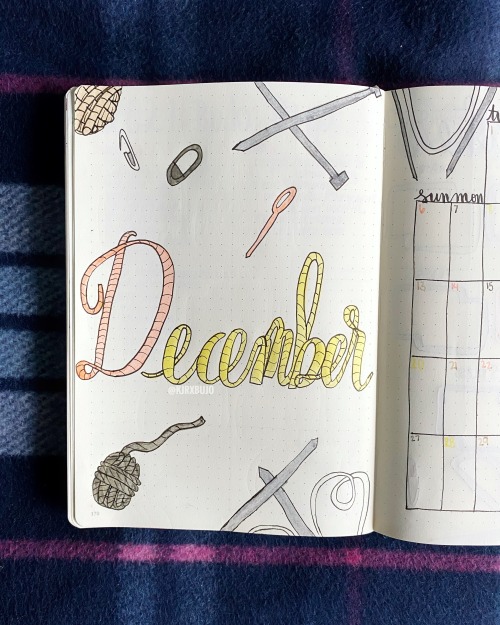 December
@KIRXBUJO
sun mon
6 7
13 14 15
20 21 22
27 28 29